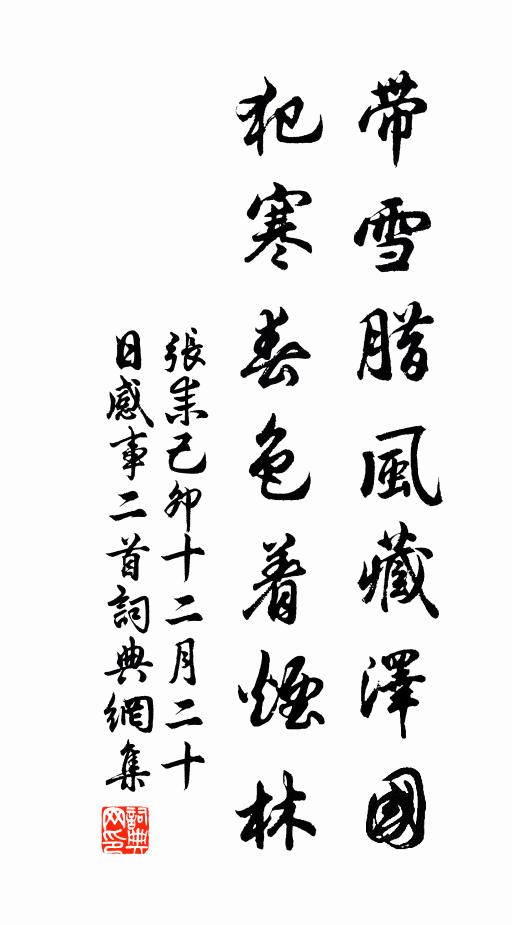 帶雪腊風藏澤國
犯寒春色着煙林
張耒己卯十二月二十
日感事二首詞典網集
詞典
网印